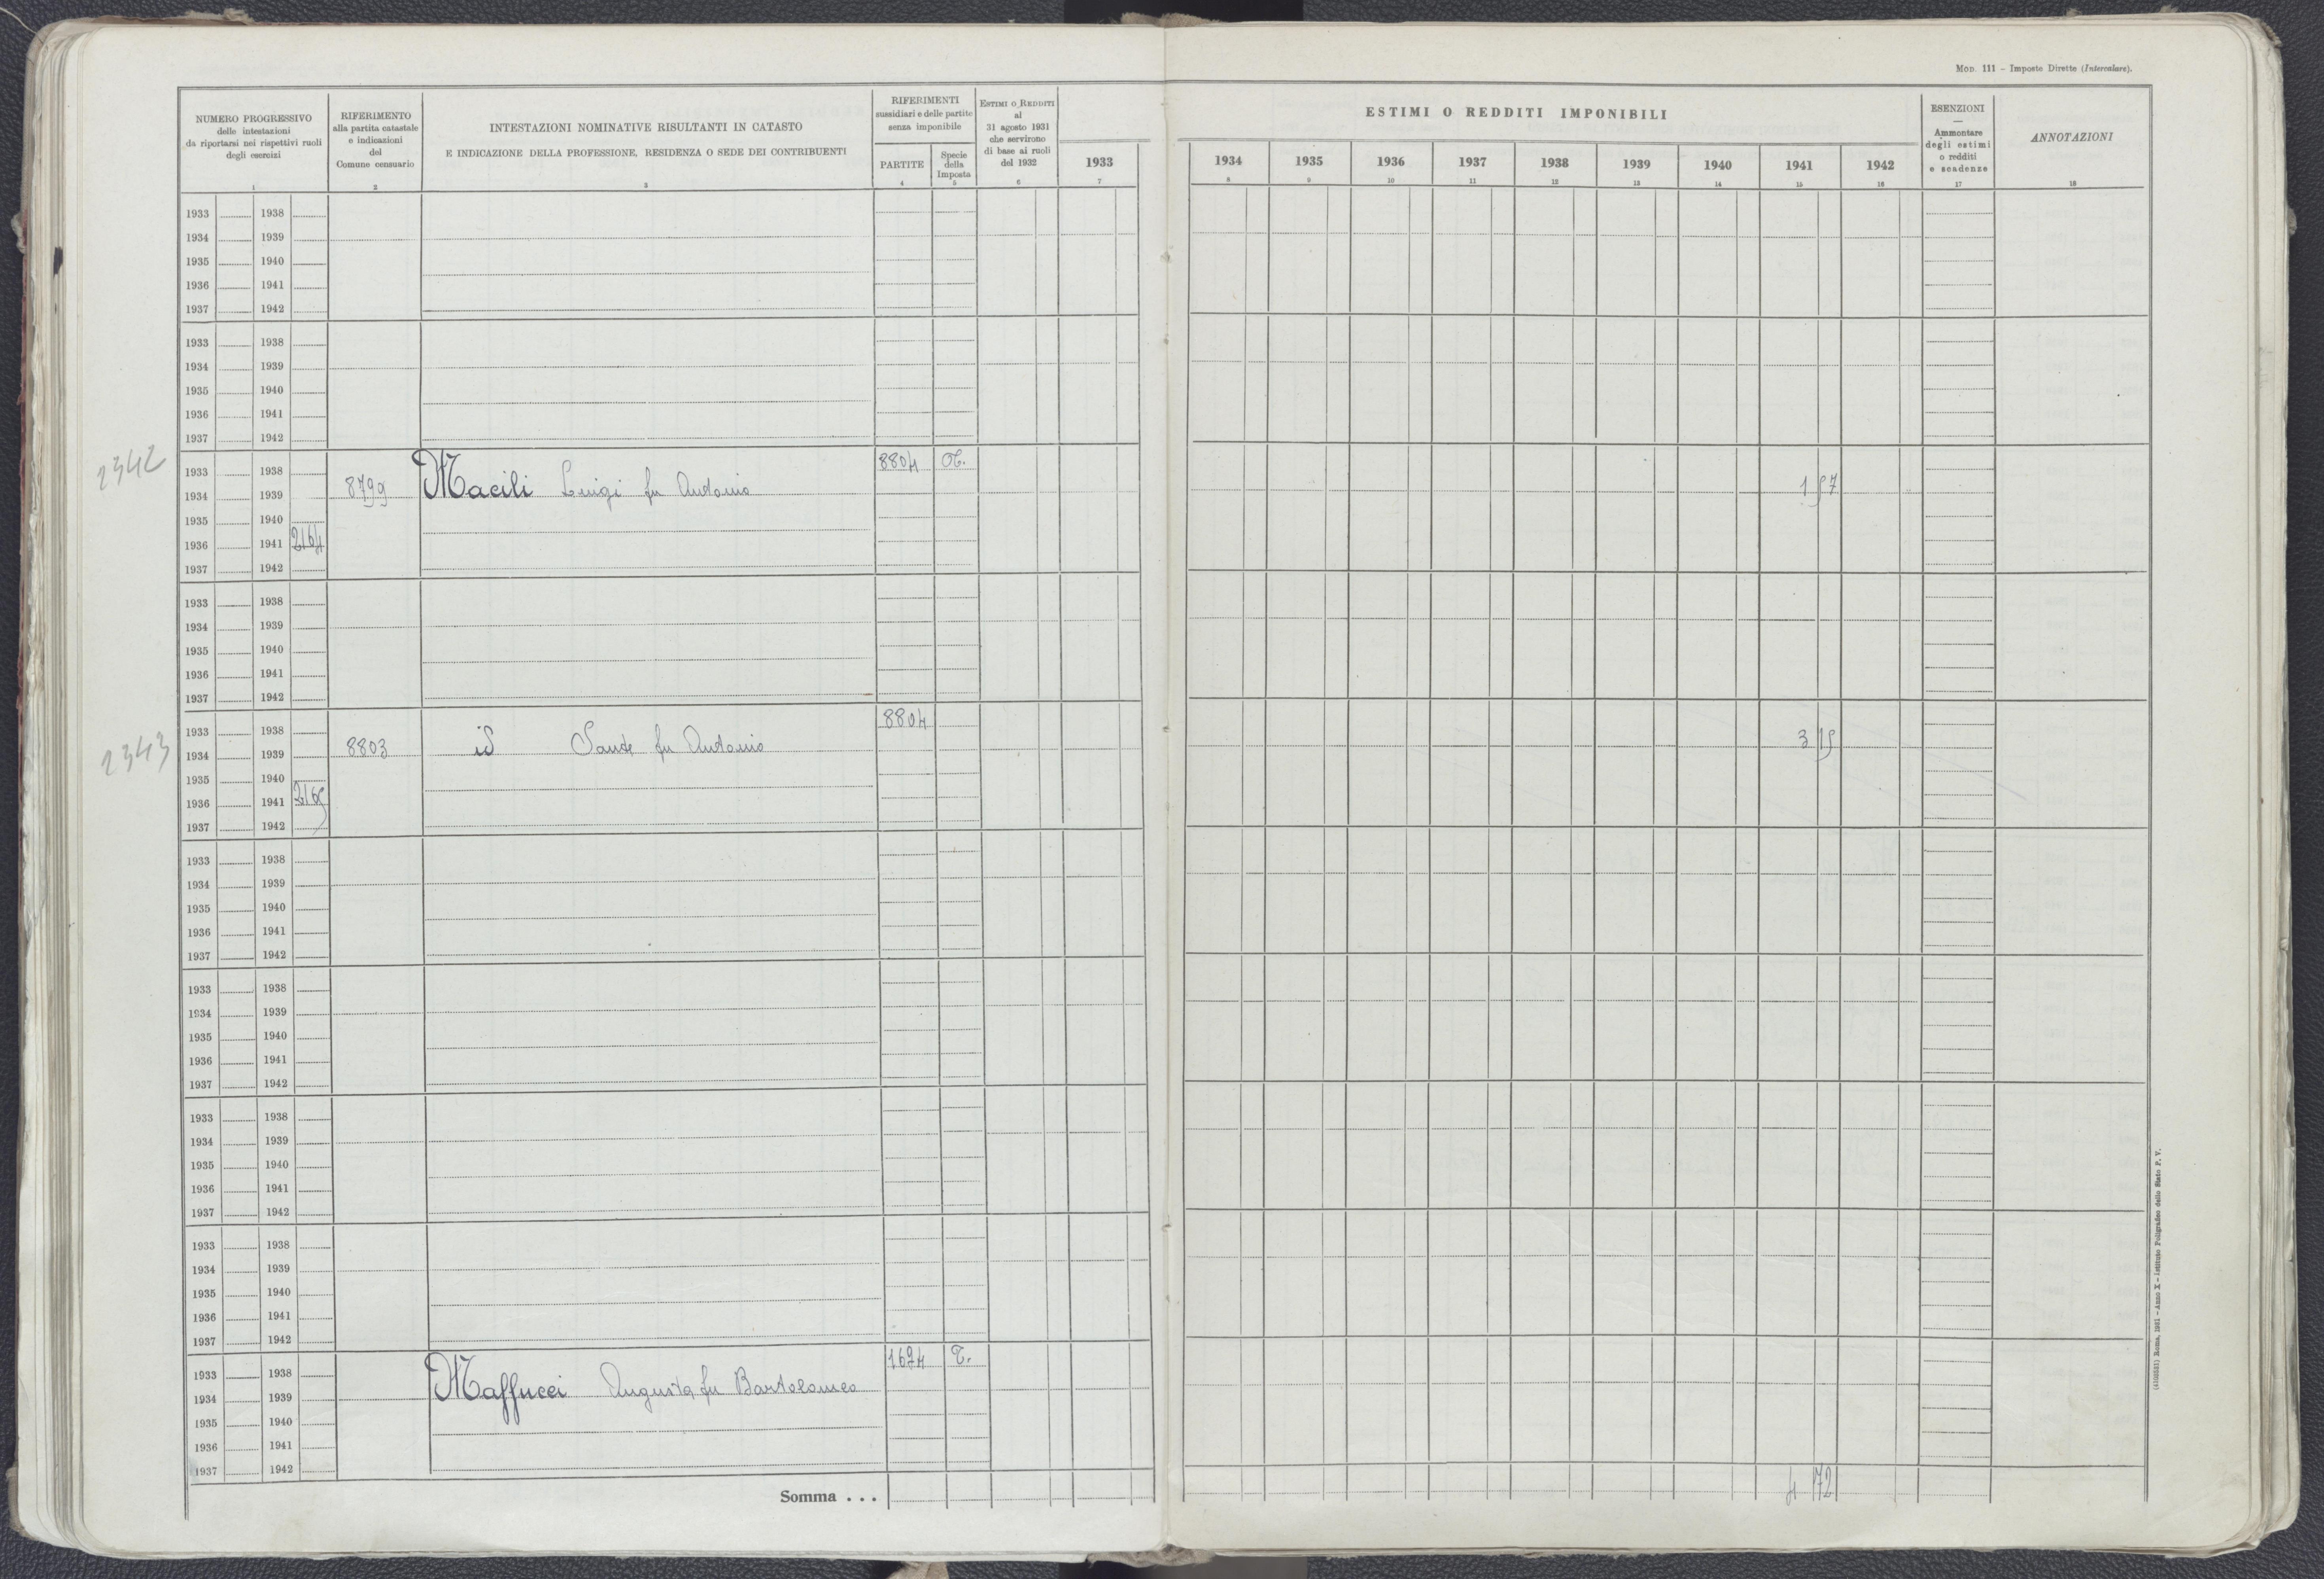 Mod. 111 – Imposte Dirette (Intercalare).
NUMERO PROGRESSIVO
delle intestazioni
da riportarsi nei rispettivi ruoli
degli esercizi
1
RIFERIMENTO
alla partita catastale
e indicazioni
del
Comune censuario
2
INTESTAZIONI NOMINATIVE RISULTANTI IN CATASTO
E INDICAZIONE DELLA PROFESSIONE, RESIDENZA O SEDE DEI CONTRIBUENTI
3
RIFERIMENTI
sussidiari e delle partite
senza imponibile
PARTITE
4
Specie
della
Imposta
5
ESTIMI O REDDITI
al
31 agosto 1931
che servirono
di base ai ruoli
del 1932
6
ESTIMI O REDDITI IMPONIBILI
1933 1934 1935 1936 1937 1938 1939 1940 1941 1942
7 8 9 10 11 12 13 14 15 16
ESENZIONI
—
Ammontare
degli estimi
o redditi
e scadenze
17
ANNOTAZIONI
18
1933 1938
1934 1939
1935 1940
1936 1941
1937 1942
1933 1938
1934 1939
1935 1940
1936 1941
1937 1942
2342
1933 1938 8804
1934 1939 8799 Macili Luigi fu Antonio 1 57
1935 1940
1936 1941 2164
1937 1942
1933 1938
1934 1939
1935 1940
1936 1941
1937 1942
2343
1933 1938 8804
1934 1939 8803 id Sante fu Antonio 3 15
1935 1940
1936 1941 2165
1937 1942
1933 1938
1934 1939
1935 1940
1936 1941
1937 1942
1933 1938
1934 1939
1935 1940
1936 1941
1937 1942
1933 1938
1934 1939
1935 1940
1936 1941
1937 1942
1933 1938
1934 1939
1935 1940
1936 1941
1937 1942
1933 1938 1624 T.
1934 1939 Maffucci Augusta fu Bartolomeo
1935 1940
1936 1941
1937 1942
Somma . . . 4 72
(4102523) Roma, 1931 – Anno X – Istituto Poligrafico dello Stato P. V.